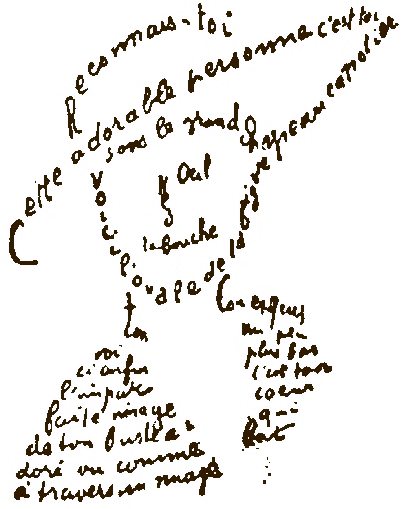 Reconnais-toi
Cette adorable personne c'est toi
sous le grand chapeau canotier
Oeil
Nez
la bouche
Voici l'ovale de ta figure
Ton cou exquis
voi
ci enfin
l'impar
faite image
de ton buste a
doré vu comme
à travers un nuage
un peu
plus bas
c'est ton
coeur
qui
bat